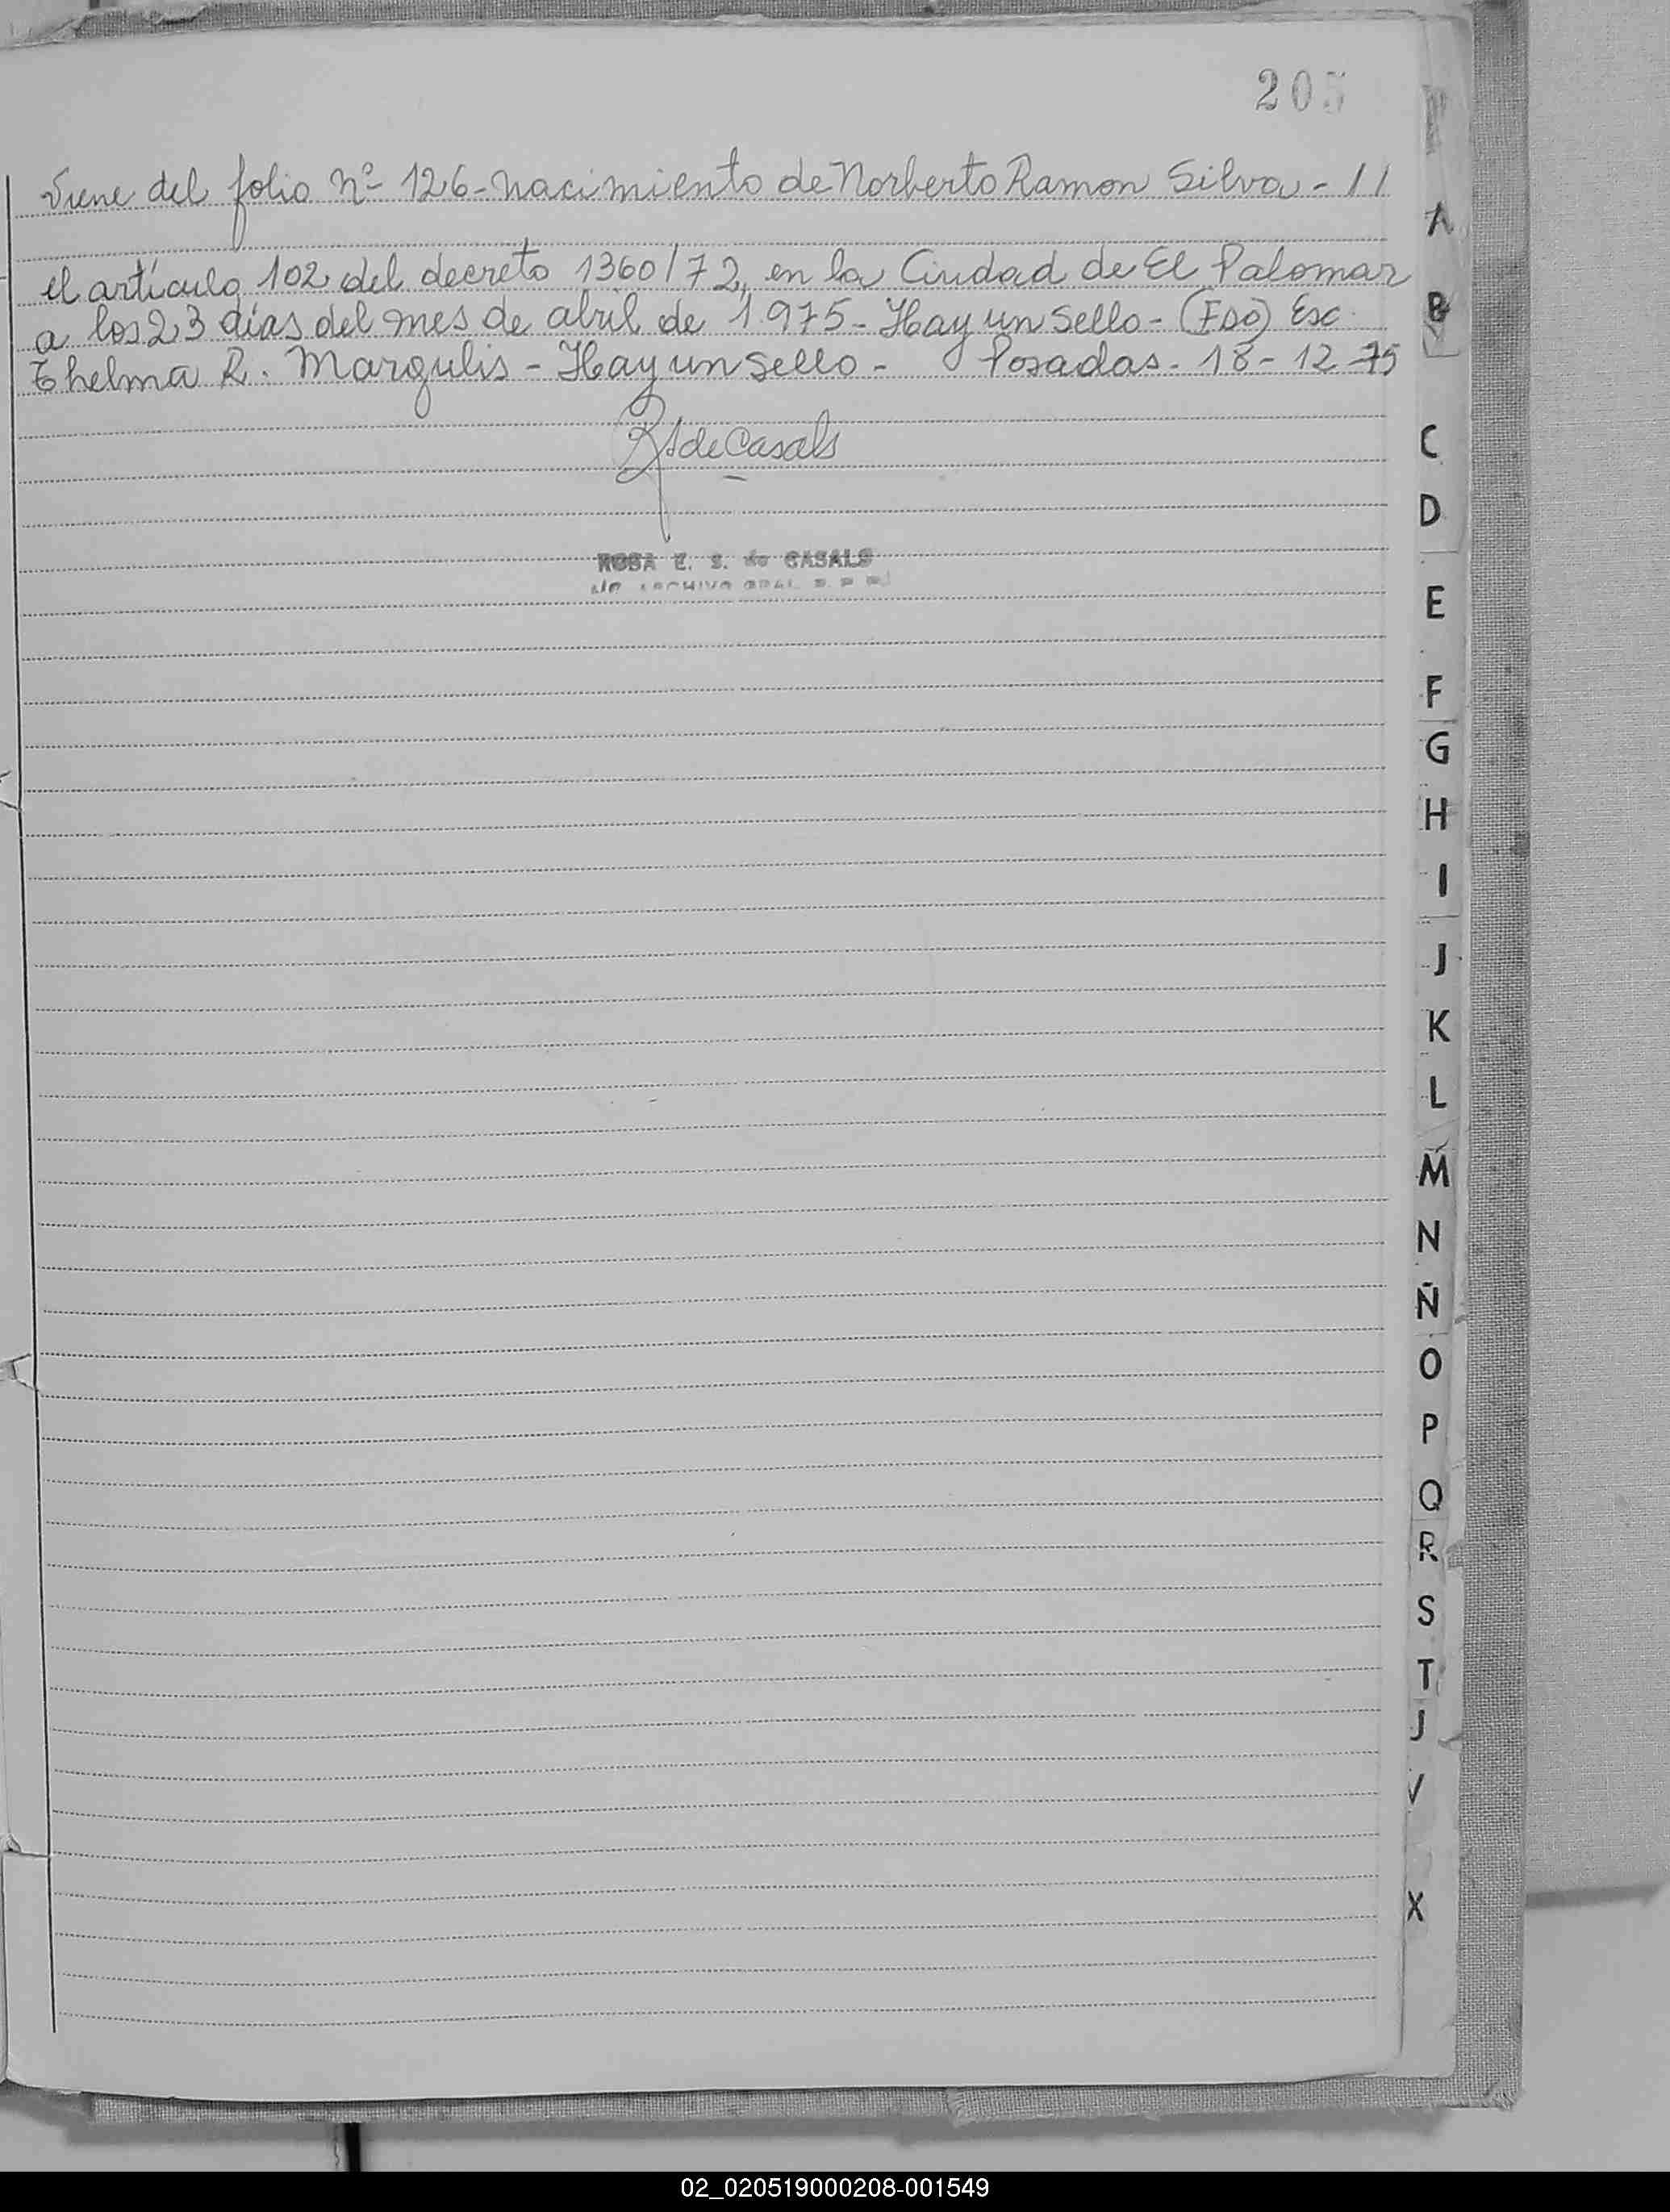 205
Viene del folio nº 126 - nacimiento de Norberto Ramon Silva - //
el artículo 102 del decreto 1360/72, en la Ciudad de El Palomar
a los 23 días del mes de abril de 1.975 - Hay un sello - (Fdo) Esc.
Thelma R. Margulis - Hay un sello - Posadas - 18 - 12 - 75
RSdeCasals
ROSA E. S. de CASALS
ARCHIVO GRAL.
A
B
C
D
E
F
G
H
I
J
K
L
M
N
Ñ
O
P
Q
R
S
T
J
V
X
02_020519000208-001549